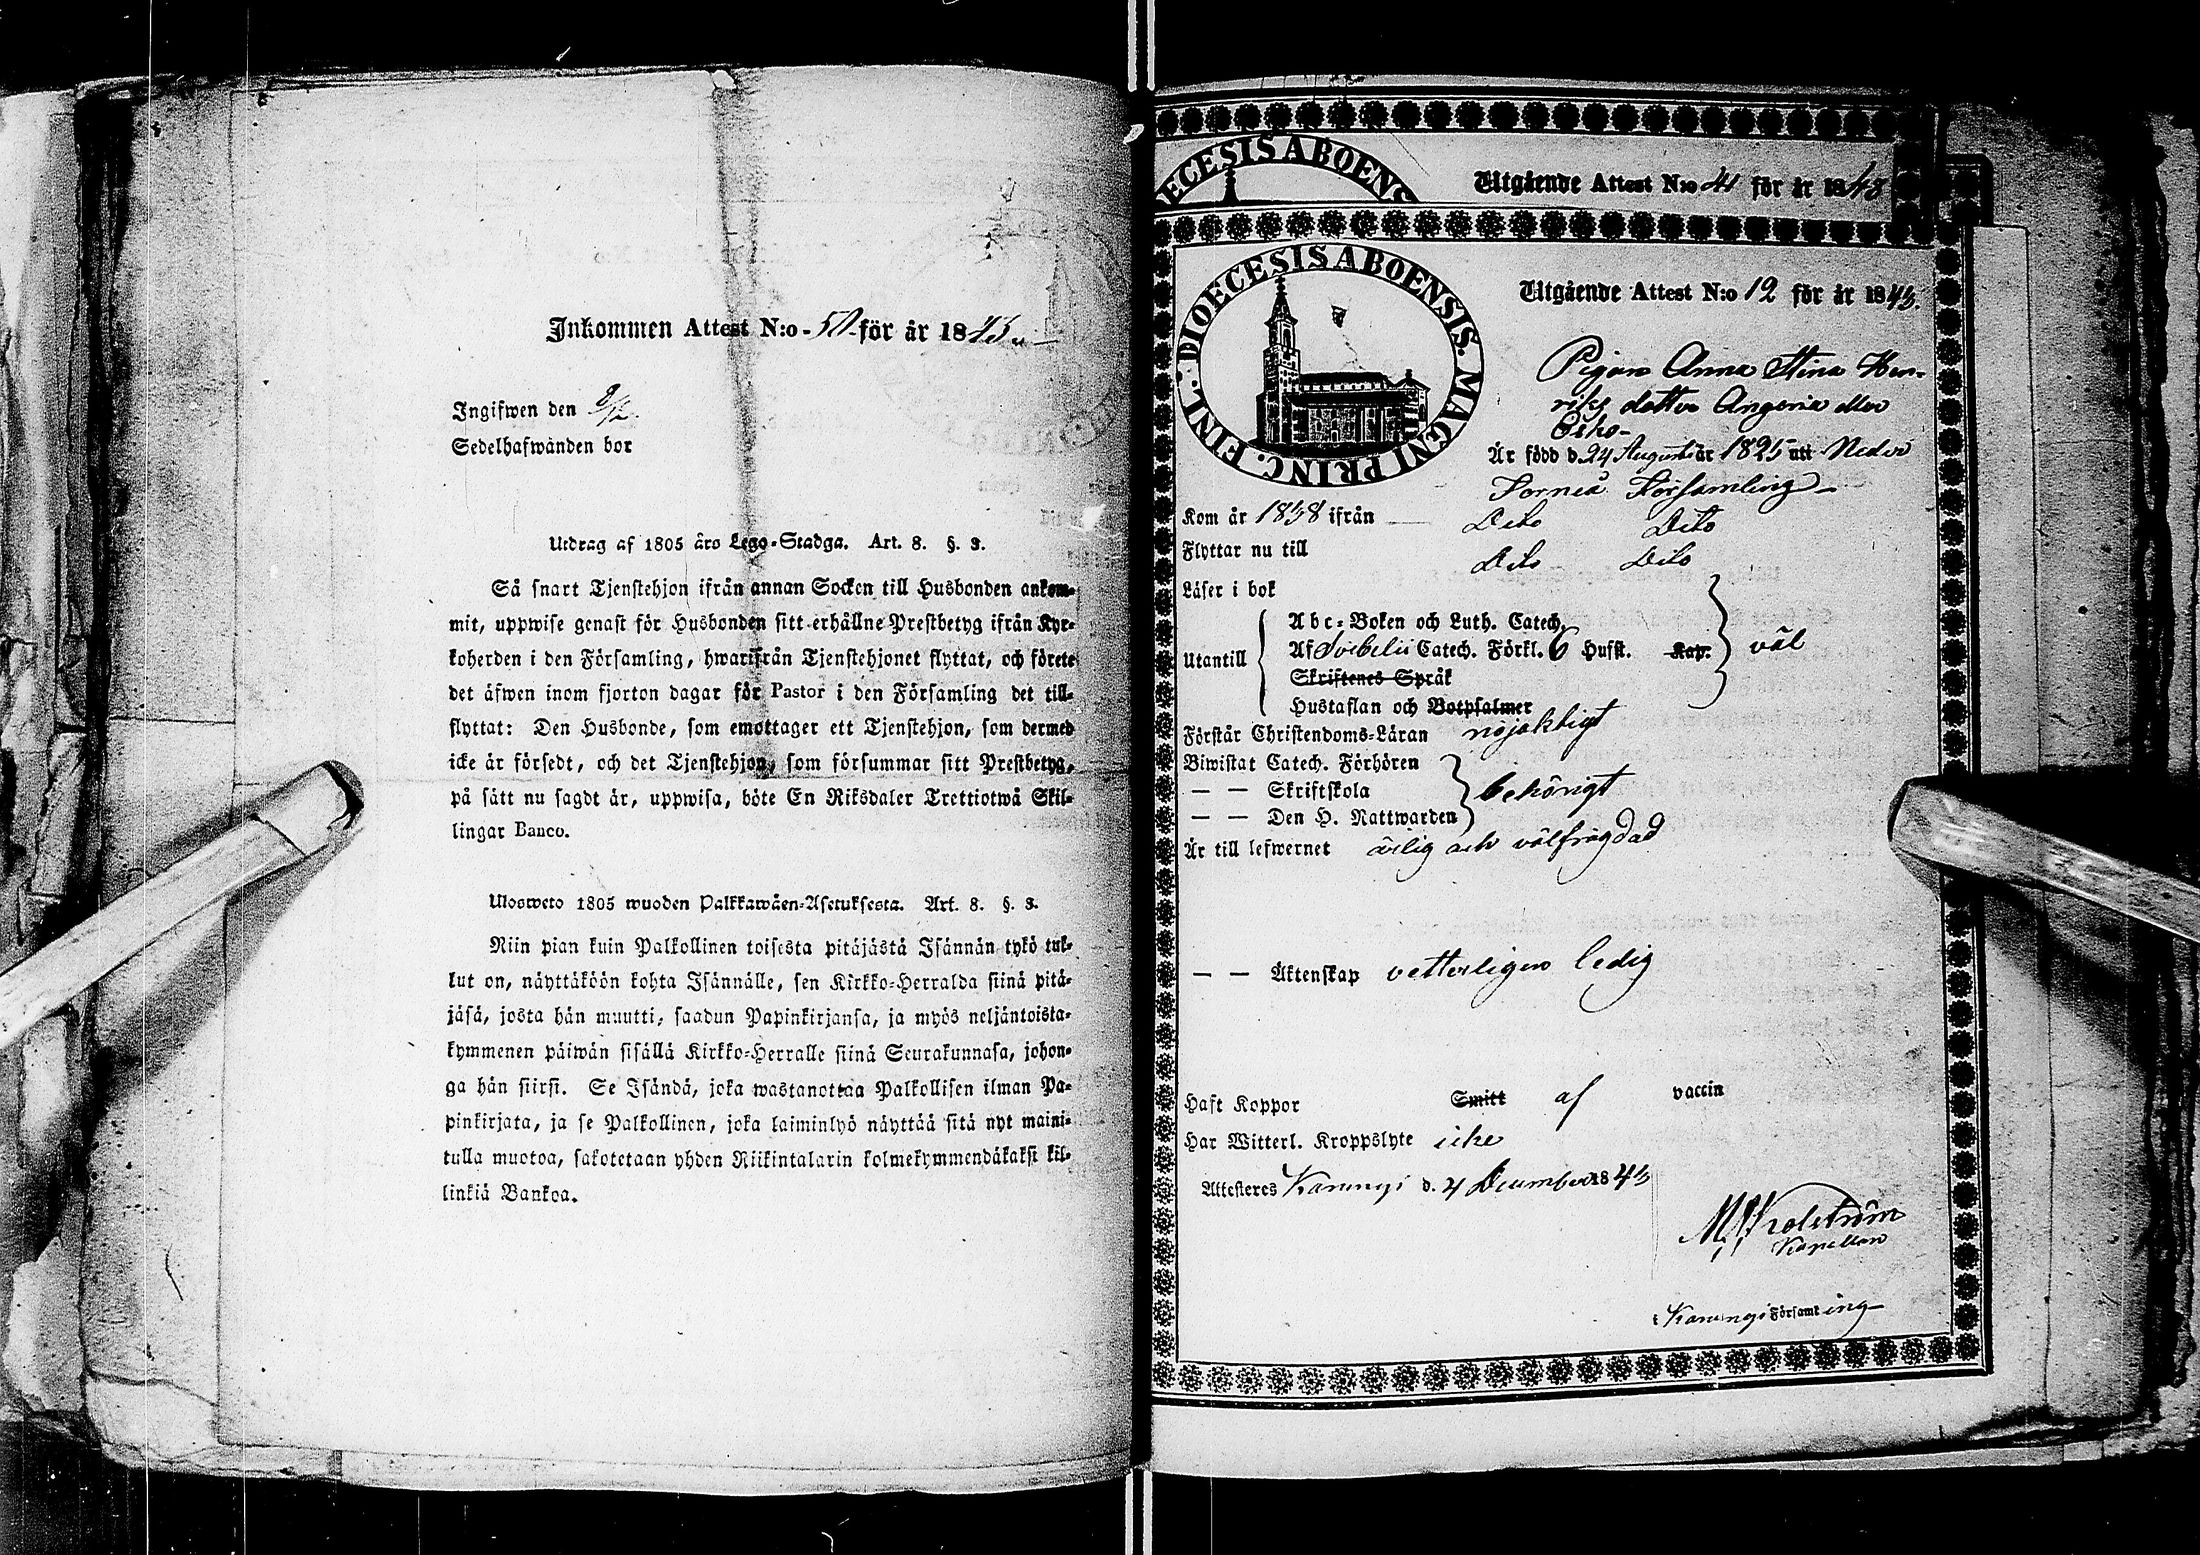 Inkommen Attest N:o - 50 - för år 1843
Ingifwen den 9/12
Sedelhafwanden bor
Utdrag af 1805 års Lego-Stadga. Art. 8. §. 3.
Så snart Tjenstehjon ifrån annan Socken till Husbonden ankom-
mit, uppwise genast för Husbonden sitt erhållne Prestbetyg ifrån Kyr-
koherden i den Församling, hwarifrån Tjenstehjonet flyttat, och förete
det äfwen inom fjorton dagar för Pastor i den Församling det till-
flyttat: Den Husbonde, som emottager ett Tjenstehjon, som dermed
icke är försedt, och det Tjenstehjon, som försummar sitt Prestbetyg,
på sätt nu sagdt är, uppwisa, böte En Riksdaler Trettiotwå Skil-
lingar Banco.
Ulosweto 1805 wuoden Palkkawäen-Asetuksesta. Art. 8. §. 3.
Niin pian kuin Palkollinen toisesta pitäjästä Isännän tykö tul-
lut on, näyttäköön kohta Isännälle, sen Kirkko-Herralda siinä pitä-
jäsä, josta hän muutti, saadun Papinkirjansa, ja myös neljäntoista-
kymmenen päiwän sisällä Kirkko-Herralle siinä Seurakunnasa, johon-
ga hän siirsi. Se Isändä, joka wastanottaa Palkollisen ilman Pa-
pinkirjata, ja se Palkollinen, joka laiminlyö näyttää sitä nyt maini-
tulla muotoa, sakotetaan yhden Riikintalarin kolmekymmendäkaksi kil-
linkiä Bankoa.
ECESIS ABOENS
Utgående Attest N:o 41 för år 1843
DIOECESIS ABOENSIS. MAGNI PRINC. FINL.
Utgående Attest N:o 12 för år 1843.
Pigan Anna Stina Hen-
riks dotter Angeria
Är född d. 24 Augusti år 1825 uti Neder
Torneå Församling
Kom år 1838 ifrån Dito Dito
Flyttar nu till Dito Dito
Läser i bok
Utantill
Abc-Boken och Luth. Catech.
Af Svebelii Catech. Förkl. 6 Hufst. Kap. väl
Skriftenes Språk
Hustaflan och Botpsalmer
Förstår Christendoms-Läran nöjaktigt
Biwistat Catech. Förhören
— — Skriftskola behörigt
— — Den H. Nattwarden
Är till lefwernet ärlig och välfrägdad
— — Äktenskap vetterligen ledig
Haft Koppor Smitt af vaccin
Har Witterl. Kroppslyte icke
Attesteres Karungi d. 4 December 1843
Kapellan
i Karungi Församling